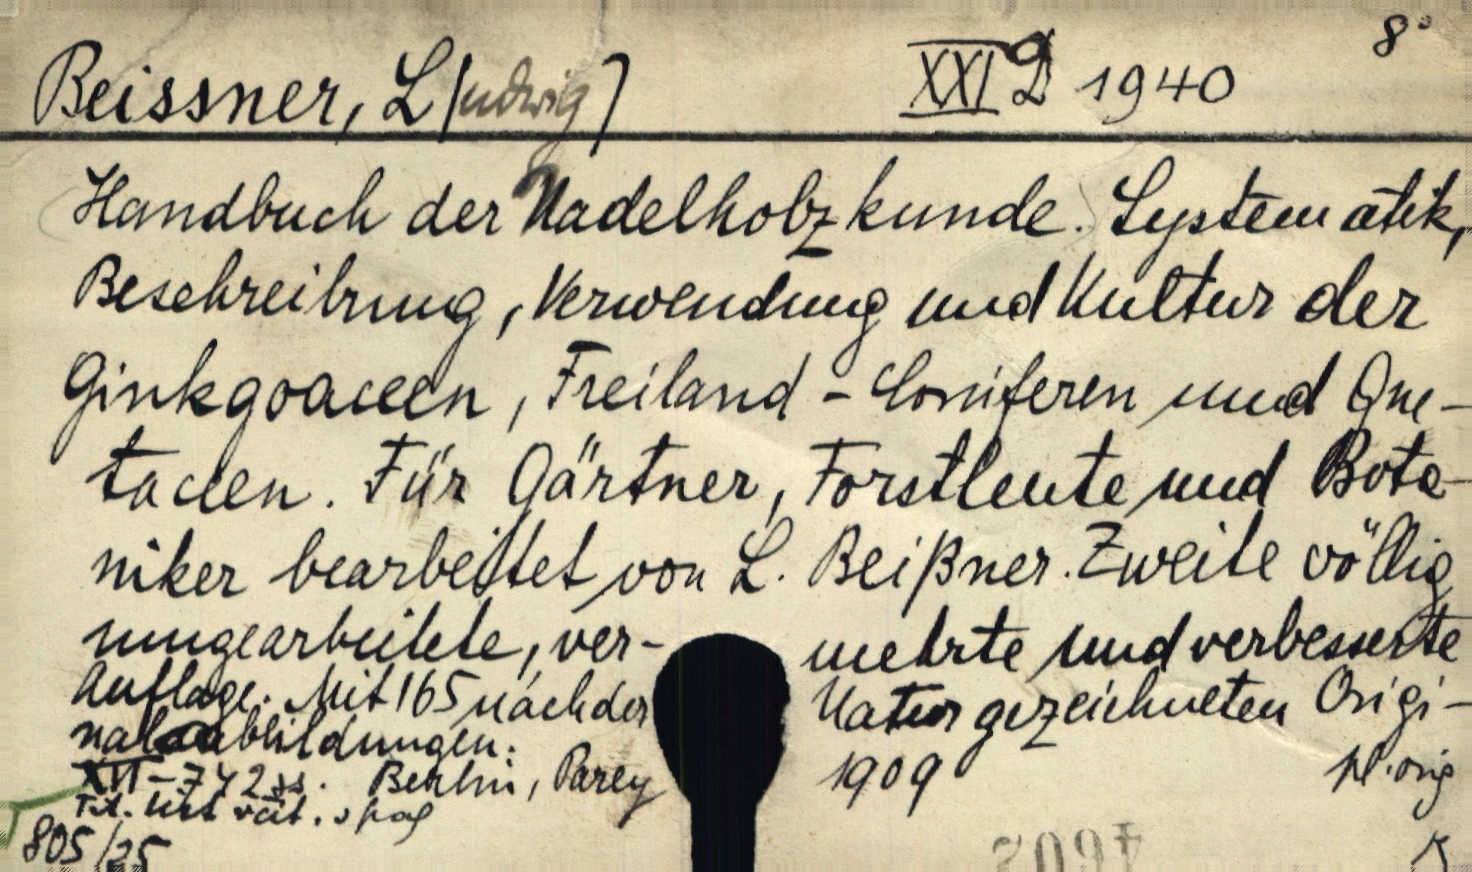 8°
Beissner, L[udwig] XXI D 1940
Handbuch der Nadelholzkunde. Systematik,
Beschreibung, Verwendung und Kultur der
Ginkgoaceen, Freiland-Coniferen und Gne-
taceen. Für Gärtner, Forstleute und Bota-
niker bearbeitet von L. Beißner. Zweite völlig
umgearbeitete, vermehrte und verbesserte
Auflage. Mit 165 nach der Natur gezeichneten Origi-
nalabbildungen.
XVI-742 ss. Berlin, Parey 1909 pl. orig
805/25